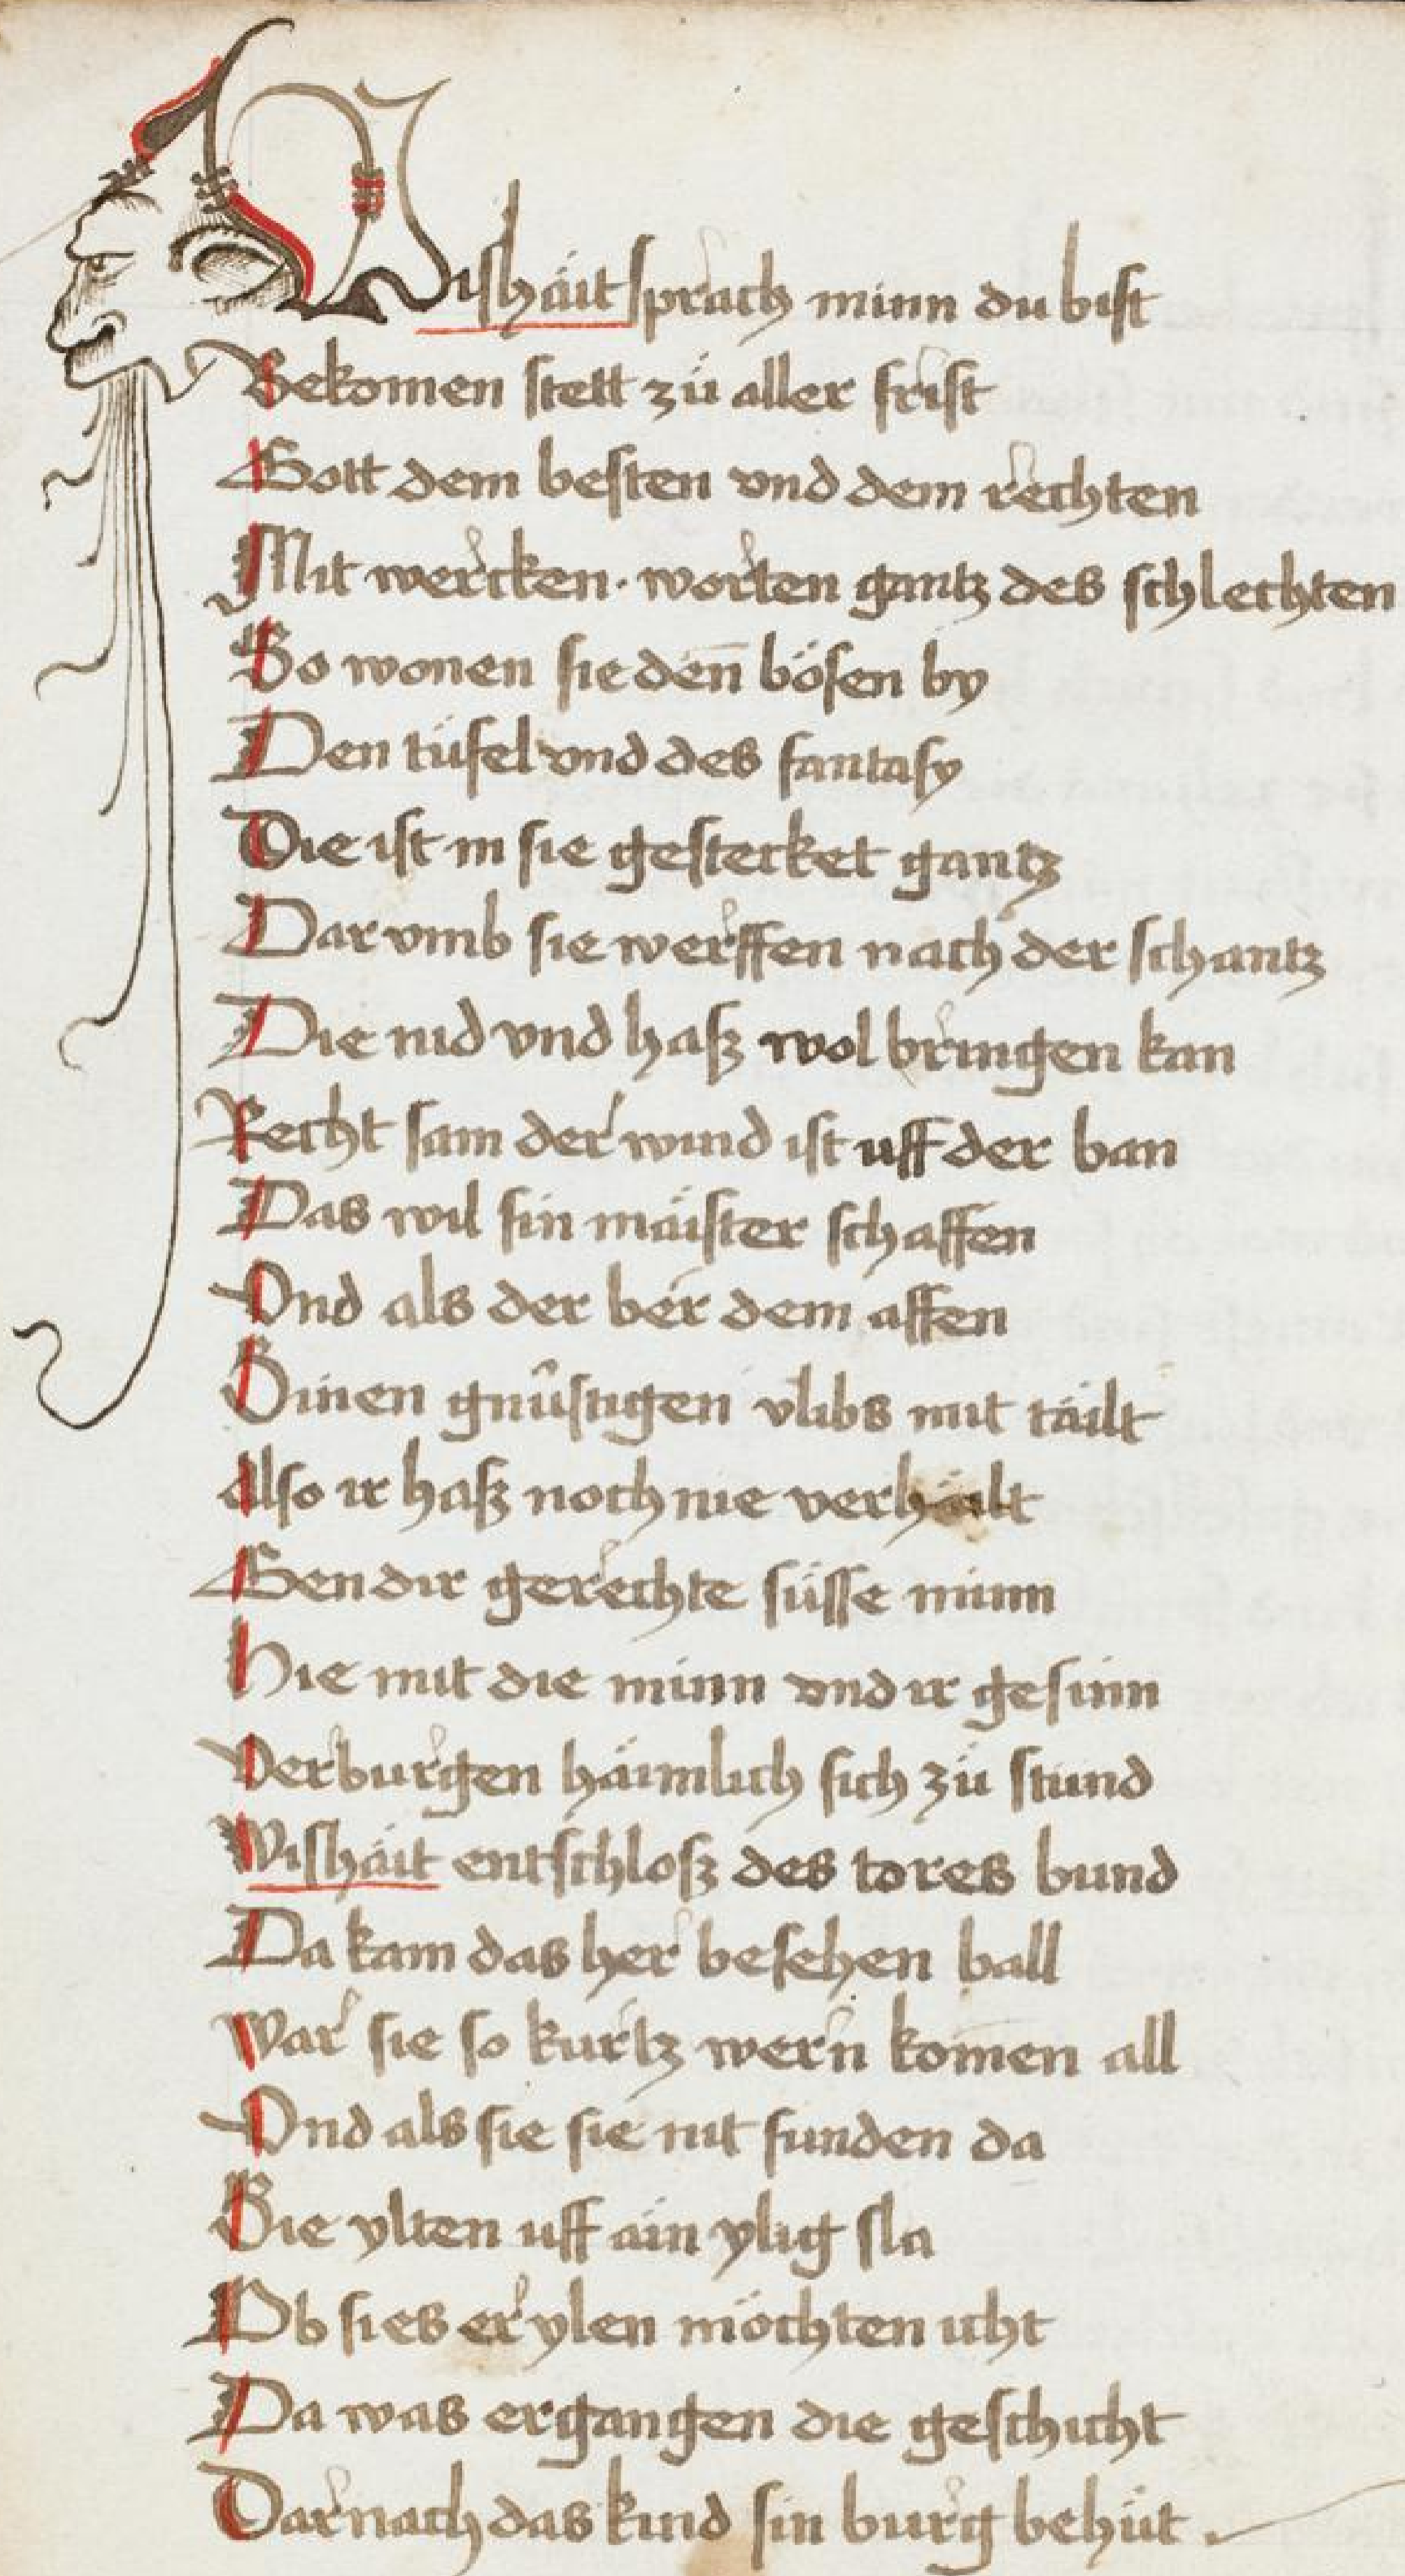 Wishäit sprach minn du bist
Bekomen stett zü aller frist
Gott dem besten vnd dem rechten
Mit wercken · worten gantz des schlechten
So wonen sie den̄ bösen by
Den tüfel vnd des fantasy
Die ist in sie gestecket gantz
Dar vmb sie werffen nach der schantz
Die nid vnd hasz wol bringen kan
Recht sam der wind ist uff der ban
Das wil sin mäister schaffen
Vnd als der ber dem affen
Sinen gnústigen vlibs mit täilt
Also ir hasz noch nie verhält
Gen dir gerechte süsse minn
Hie mit die minn vnd ir gesinn
Verburgen häimlich sich zü stund
Wishäit entschlosz des tores bund
Da kam das her besehen ball
War sie so kurtz wern komen all
Vnd als sie sie nit funden da
Sie ylten uff ain ylig sla
Ob sies erylen möchten icht
Da was ergangen die geschicht
Darnach das kind sin burg behüt .